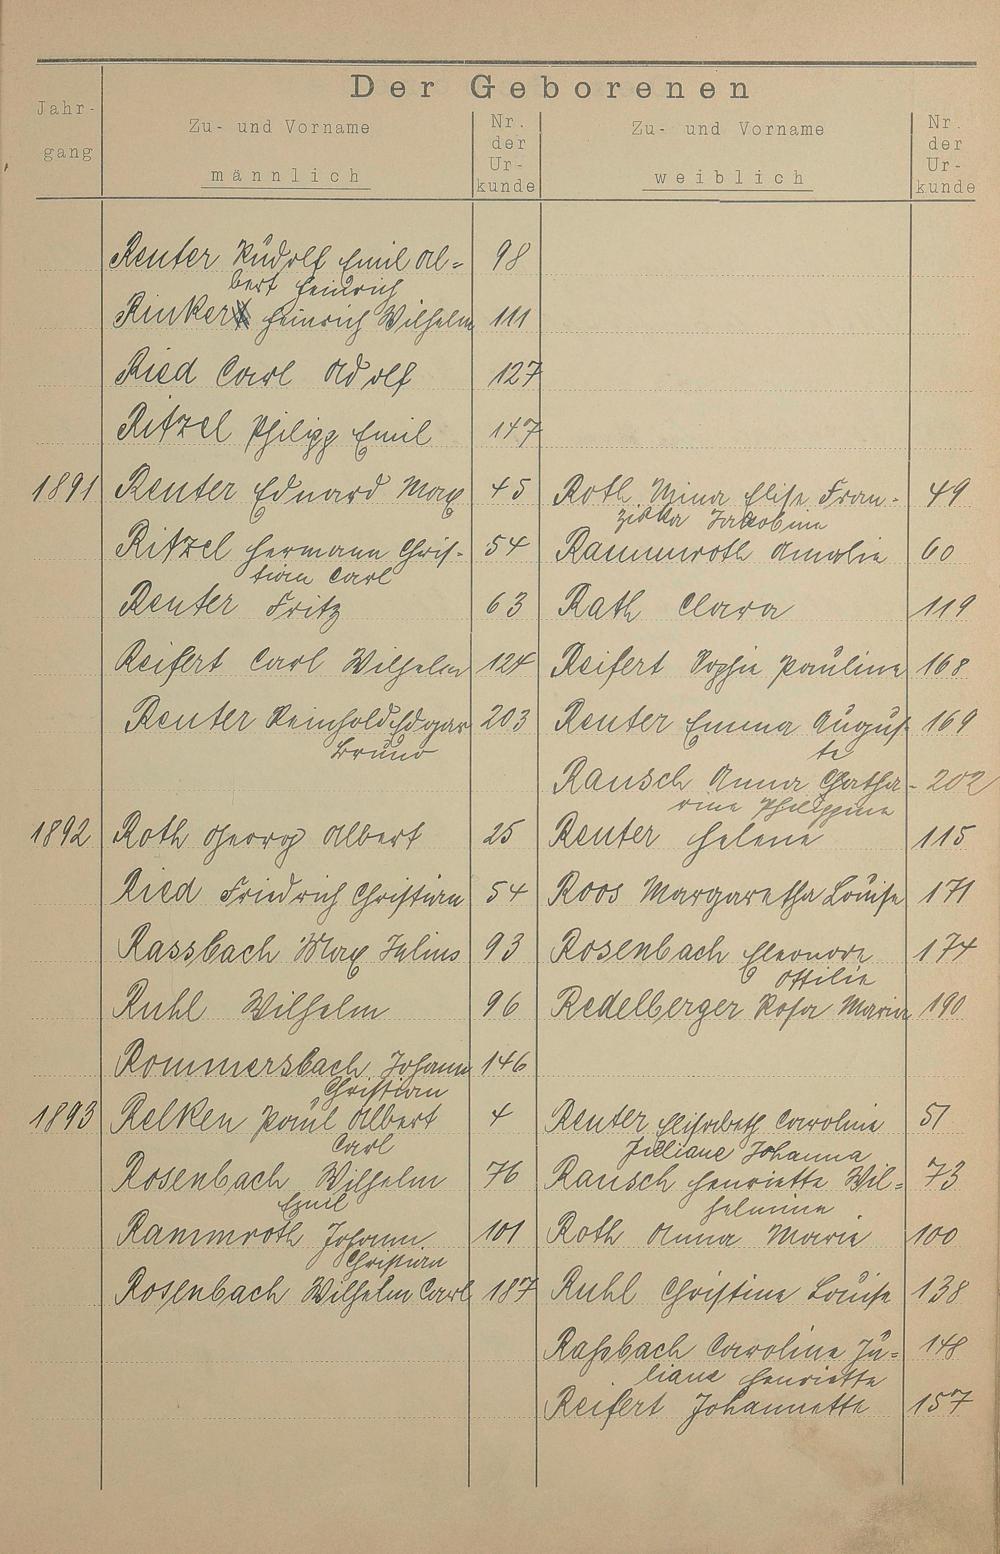 Der Geborenen
Jahr-
gang
Zu- und Vorname
männlich
Nr.
der
Ur-
kunde
Zu- und Vorname
weiblich
Nr.
der
Ur-
kunde
Reuter Rudolf Emil Al= 98
bert Heinrich
Rinker Heinrich Wilhelm 111
Ried Carl Adolf 127
Ritzel Philipp Emil 147
1891 Reuter Eduard Max 45 Roth Mina Elise Fran- 49
ziska Jakobine
Ritzel Hermann Chris- 54 Rammroth Amalie 60
tian Carl
Reuter Fritz 63 Rath Clara 119
Reifert Carl Wilhelm 124 Reifert Sophie Pauline 168
Reuter Reinhold Edgar 203 Reuter Emma Augus- 169
Bruno te
Rausch Anna Catha- 202
rine Philippine
1892 Roth Georg Albert 25 Reuter Helene 115
Ried Friedrich Christian 54 Roos Margaretha Louise 171
Rassbach Max Julius 93 Rosenbach Eleonore 174
Ottilie
Ruhl Wilhelm 96 Redelberger Rosa Maria 190
Rommersbach Johann 146
Christian
1893 Relken Paul Albert 4 Reuter Elisabeth Caroline 51
Carl Juliane Johanna
Rosenbach Wilhelm 76 Rausch Henriette Wil= 73
Emil helmine
Rammroth Johann 101 Roth Anna Marie 100
Christian
Rosenbach Wilhelm Carl 187 Ruhl Christine Louise 138
Raßbach Caroline Ju= 148
liane Henriette
Reifert Johannette 157